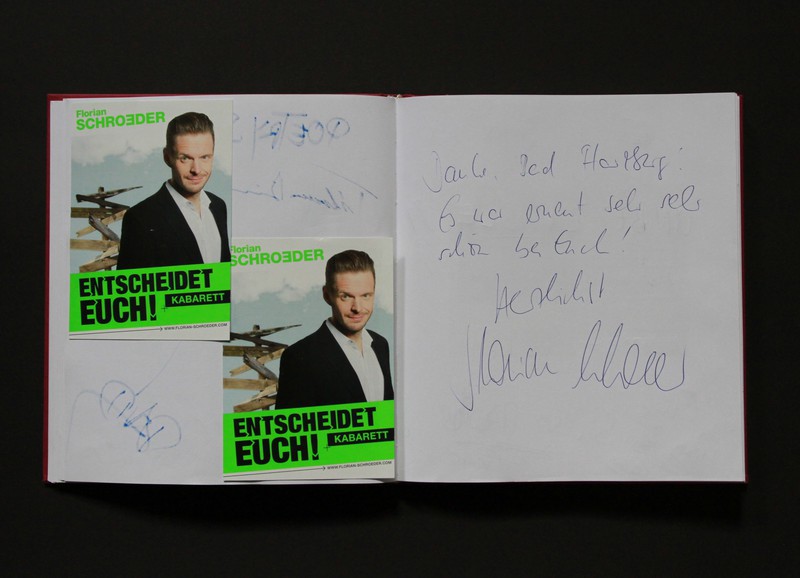 Florian
SCHROEDER
ENTSCHEIDET
EUCH!
KABARETT
WWW.FLORIAN-SCHROEDER.COM
Florian
SCHROEDER
ENTSCHEIDET
EUCH!
KABARETT
WWW.FLORIAN-SCHROEDER.COM
Danke, Bad Harzburg!
Es war erneut sehr sehr
schön bei Euch!
Herzlichst
Florian Schroeder